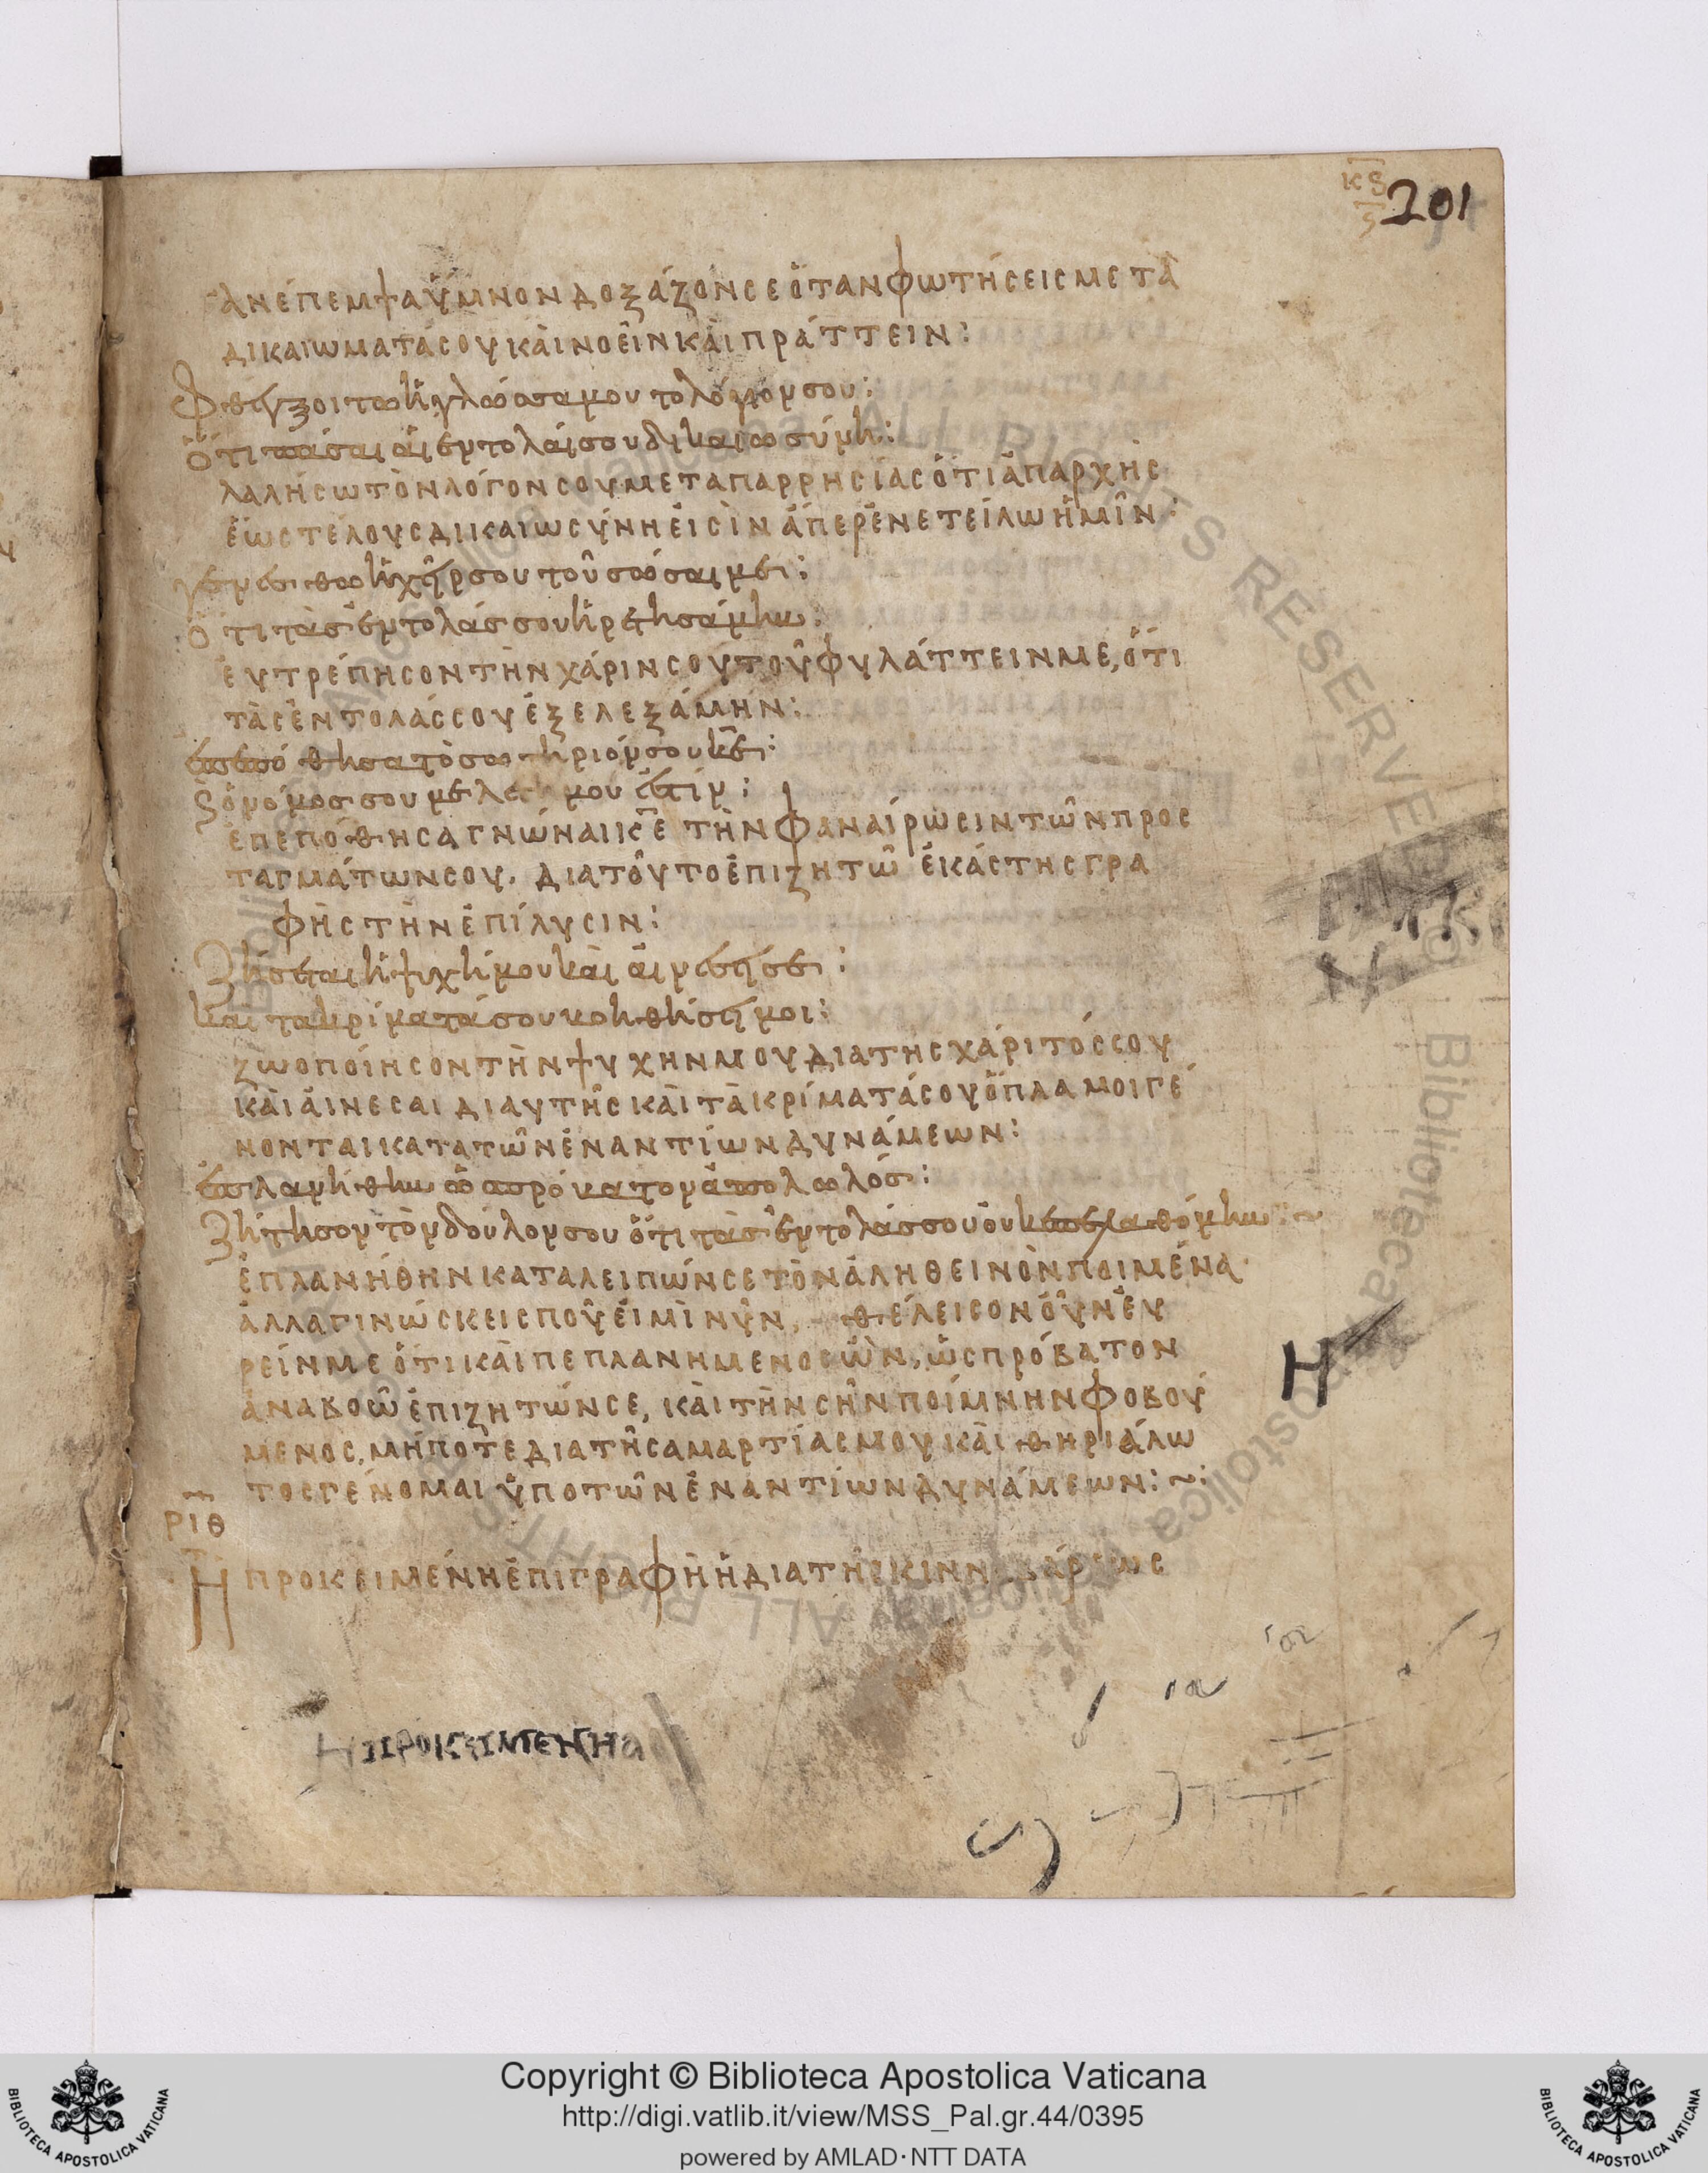 κϛ
ϛ
201
ἀνέπεμψα ὕμνον δοξάζον σε ὅταν φωτήσεις με τὰ
δικαιωματά σου καὶ νοεῖν καὶ πράττειν:
Φθέγξοιτω ἡ γλῶσσα μου το λόγιον σου:
Ὅτι πάσαι αἱ ἐντολαί σου δικαιωσύνη:
λαλήσω τὸν λόγον σου μετα παρρησίας ὅτι ἀπαρχῆς
ἕως τέλους δικαιωσύνη ἐισὶν ἅπερ ἐνετείλω ἡμῖν:
γενέσθω ἡ χείρ σου τοῦ σῶσαι με:
Ὅτι τὰς ἐντολάς σου ἡρετησάμην:
ἐυτρέπησον τὴν χάριν σου τοῦ φυλάττειν με, ὅτι
τὰς ἐντολάς σου ἐξελεξάμην:
ἐπεπόθησα τὸ σωτήριόν σου κε:
ϛ ὁ νόμος σου μελετη μου ἐστίν:
ἐπεπόθησα γνώναι κε τὴν φαναίρωσιν τῶν προσ
ταγμάτων σου. διατοῦτο ἐπιζητῶ ἑκάστης γρα
φῆς τὴν ἐπίλυσιν:
Ζήσεται ἡ ψυχή μου καὶ αἰνέσει σε:
και τα κρίματά σου βοηθήσει μοι:
ζωοποίησον τὴν ψυχην μου δια της χάριτός σου
καὶ ἀινεσαι δι αυτῆς καὶ τὰ κρίματά σου ὅπλα μοι γέ
νονται κατα τῶν ἐναντίων δυνάμεων:
ἐπλανήθην ὡς πρόβατον ἀπολωλός:
Ζήτησον τὸν δούλον σου ὅτι τὰς ἐντολάς σου ὀυκ ἐπελαθόμην:~
ἐπλανήθην καταλειπών σε τὸν ἀληθεινὸν ποιμένα·
ἀλλα γινώσκεις ποῦ ἐιμὶ νῦν, θέλεισον ὀῦν ἑυ
ρείν με ὅτι καὶ πεπλανημενος ὢν, ὡς πρόβατον
ἀναβοῶ ἐπιζητών σε, καὶ τὴν σὴν ποίμνην φοβού
μενος, μήποτε δια τῆς αμαρτίας μου καὶ θηριάλω
τος γένομαι ὑπο τῶν ἐναντίων δυνάμεων:~:
ριθ
Ἡ προκειμένη ἐπιγραφὴ ἡ δια τῆς κινναβάρεως
Η
Η προκειμενη
Copyright © Biblioteca Apostolica Vaticana
http://digi.vatlib.it/view/MSS_Pal.gr.44/0395
powered by AMLAD·NTT DATA
BIBLIOTECA APOSTOLICA VATICANA
BIBLIOTECA APOSTOLICA VATICANA